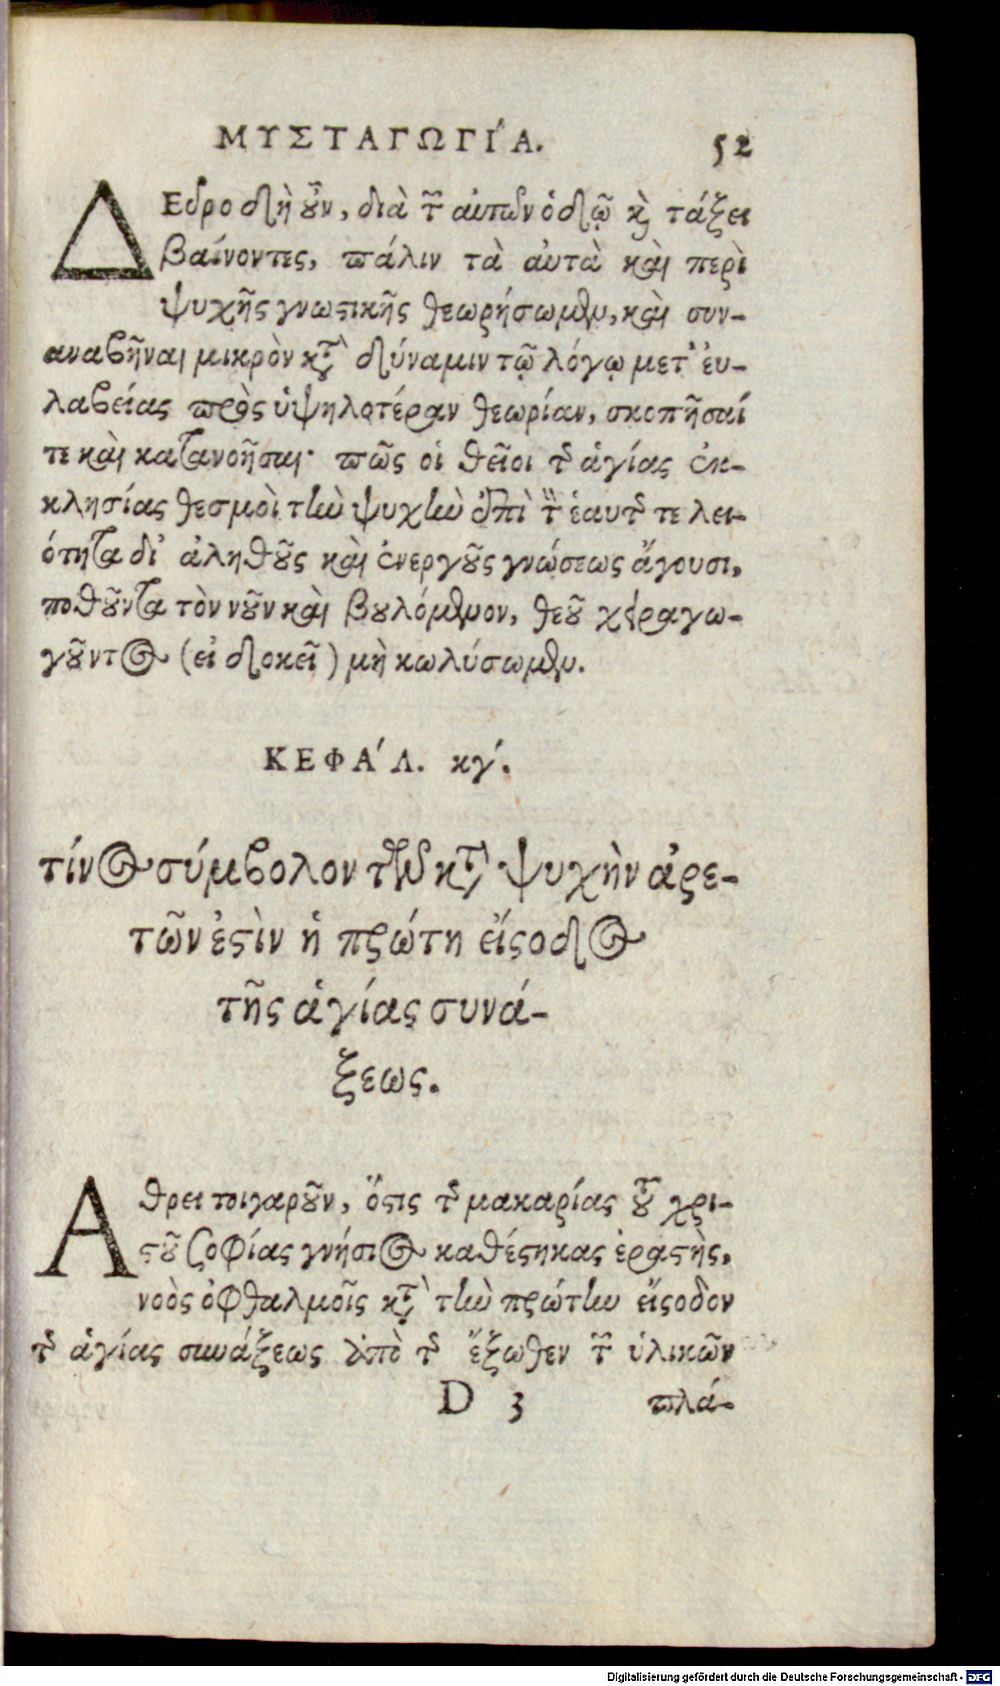 ΜΥΣΤΑΓΩΓΙ΄Α. 52
ΔΕῦρο δὴ οὖν, διὰ τῶν αὐτῶν ὁδῷ καὶ τάξει
βαίνοντες, πάλιν τὰ αὐτὰ καὶ περὶ
ψυχῆς γνωστικῆς θεωρήσωμεν, καὶ συν-
αναβῆναι μικρὸν κατὰ δύναμιν τῷ λόγῳ μετ' εὐ-
λαβείας πρὸς ὑψηλοτέραν θεωρίαν, σκοπῆσαί
τε καὶ κατανοῆσαι· πῶς οἱ θεῖοι τῆς ἁγίας ἐκ-
κλησίας θεσμοὶ τὴν ψυχὴν ἐπὶ τὴν ἑαυτῆς τελει-
ότητα δι' ἀληθοῦς καὶ ἐνεργοῦς γνώσεως ἄγουσι,
ποθοῦντα τὸν νοῦν καὶ βουλόμενον, θεοῦ χειραγω-
γοῦντος (εἰ δοκεῖ) μὴ κωλύσωμεν.
ΚΕΦΑ΄Λ. κγ΄.
τίνος σύμβολον τῶν κατὰ ψυχὴν ἀρε-
τῶν ἐστὶν ἡ πρώτη εἴσοδος
τῆς ἁγίας συνά-
ξεως.
Αθρει τοιγαροῦν, ὅστις τῆς μακαρίας τοῦ χρι-
στοῦ σοφίας γνήσιος καθέστηκας ἐραστὴς,
νοὸς ὀφθαλμοῖς κατὰ τὴν πρώτην εἴσοδον
τῆς ἁγίας συνάξεως ἀπὸ τῆς ἔξωθεν τῶν ὑλικῶν
D 3 πλά-
Digitalisierung gefördert durch die Deutsche Forschungsgemeinschaft - DFG